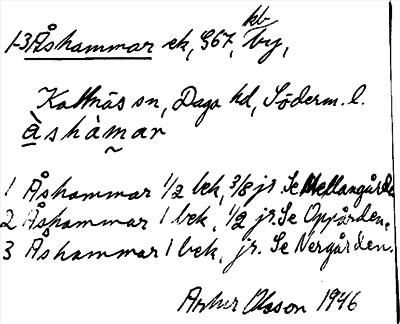 kb
1-3 Åshammar ek, G67, by,
Kattnäs sn, Daga hd, Söderm. l.
àshàmar
1 Åshammar 1/2 bek, 3/8 jr. Se Mellangården
2 Åshammar 1 bek, 1/2 jr. Se Oppgården.
3 Åshammar 1 bek, jr. Se Nergården.
Arthur Olsson 1946